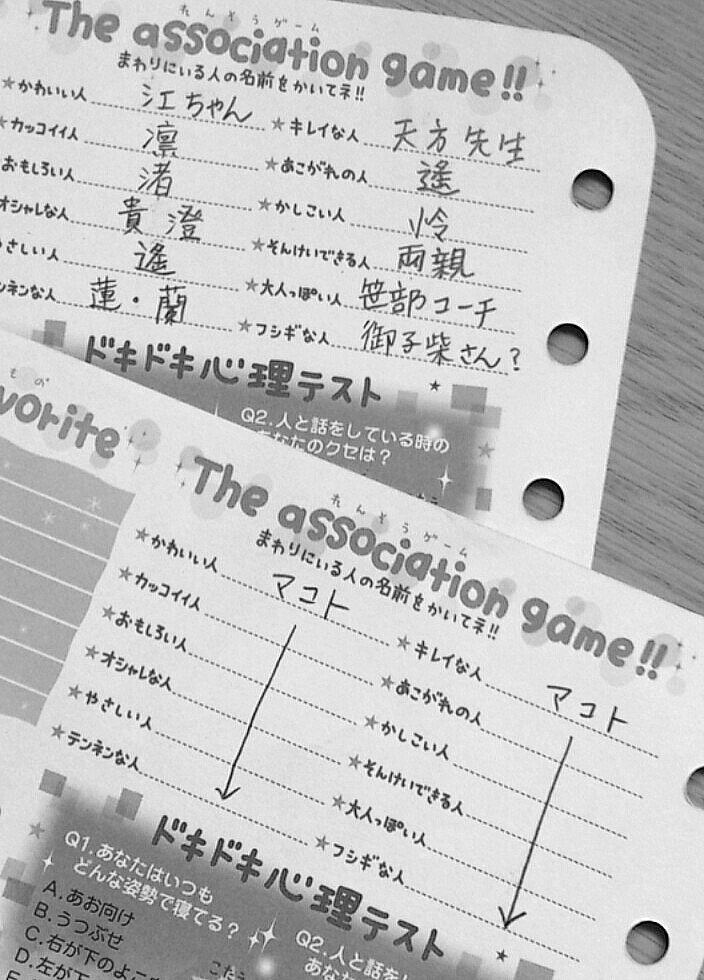 れんそうゲーム
The association game!!
まわりにいる人の名前をかいてネ!!
★かわいい人 江ちゃん ★キレイな人 天方先生
★カッコイイ人 凛 ★あこがれの人 遙
おもしろい人 渚 ★かしこい人 怜
オシャレな人 貴澄 ★そんけいできる人 両親
やさしい人 遙 ★大人っぽい人 笹部コーチ
ンネンな人 蓮・蘭 ★フシギな人 御子柴さん?
ドキドキ心理テスト
Q2.人と話をしている時の
あなたのクセは?
もの
vorite
れんそうゲーム
The association game!!
まわりにいる人の名前をかいてネ!!
★かわいい人 マコト ★キレイな人 マコト
★カッコイイ人 ★あこがれの人
★おもしろい人 ★かしこい人
★オシャレな人 ★そんけいできる人
★やさしい人 ★大人っぽい人
★テンネンな人 ★フシギな人
ドキドキ心理テスト
Q1.あなたはいつも
どんな姿勢で寝てる?
A.あお向け
B.うつぶせ
C.右が下のよこ
D.左が下
こたう
Q2.人と話を
あなた